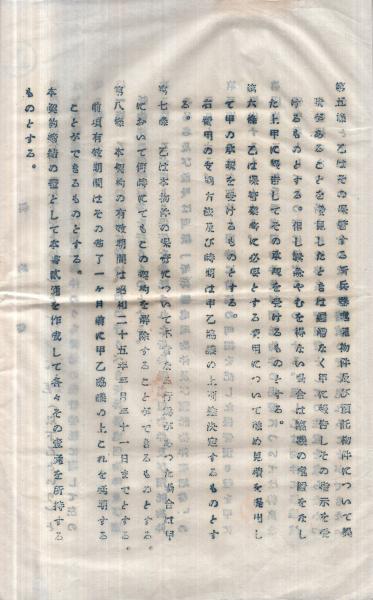 第五條　乙はその保管する 物件及び 物件について
あることを発見したときは遅滞なく甲に報告しその指示を受
けるものとする。但し緊急やむを得ない場合は 措置をなし
た上甲に報告してその承認を受けるものとする。
第六條　乙は保管 に必要とする費用について予め見積を提出し
て甲の承認を受けるものとする。
右費用の支拂方法及び時期は甲乙協議の上 決定するものとす
る。
第七條　乙は本物件の保管について不 行為があつた場合は甲
において何時にてもこの契約を解除することができるものとする。
第八條　本契約の有效期間は昭和二十五年三月三十一日までとする。
前項有效期間はその満了一ヶ月前に甲乙協議の上これを延期する
ことができるものとする。
本契約締結の證として本書貳通を作成して各々その壹通を所持する
ものとする。